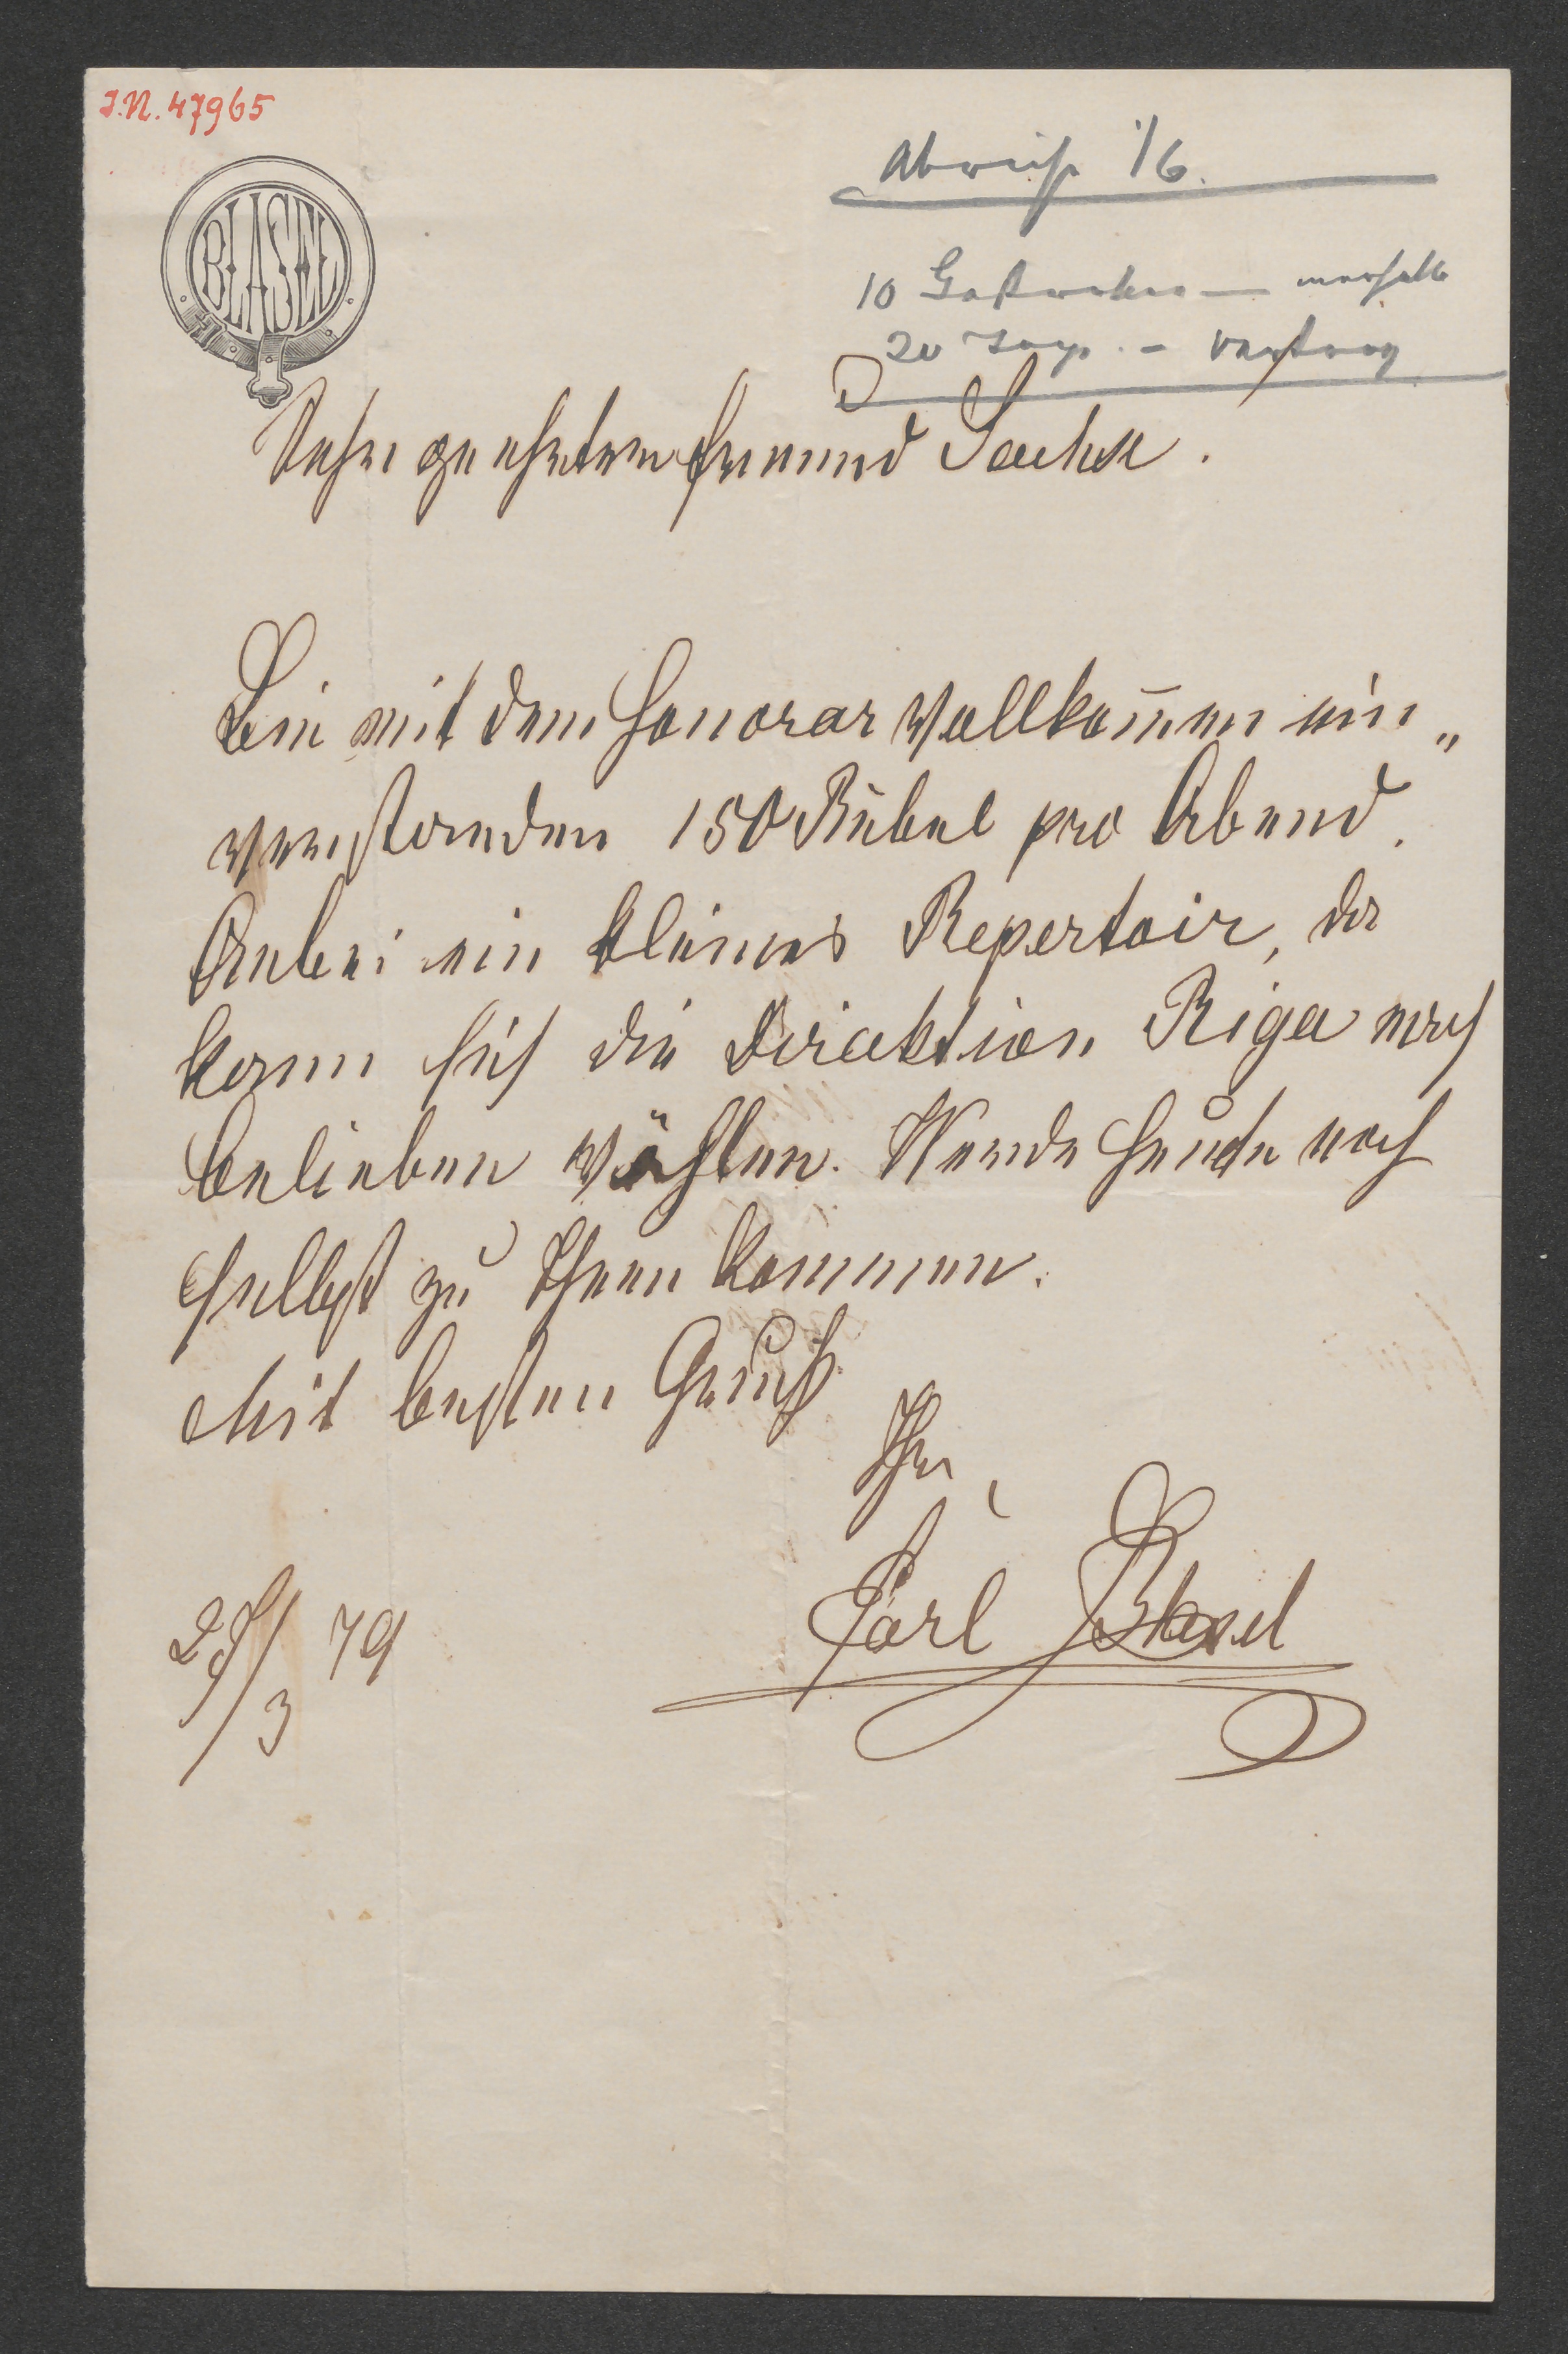 I.N. 47965
BLASEL
Abreise 1/6.
10 Gastrollen — innerhalb
20 Tage. – Vertrag
Sehr geehrter Freund Sachse.
Bin mit dem Honorar vollkom̄en ein„
verstanden 150 Rubel pro Abend.
Anbei ein kleines Repertoir, da
kann sich die Direktion Riga nach
belieben wählen. Werde heute noch
selbst zu Ihnen kommen.
Mit besten Gruß
Ihr
Carl Blasel
/3 79